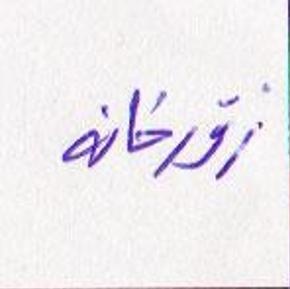 زقورخانه